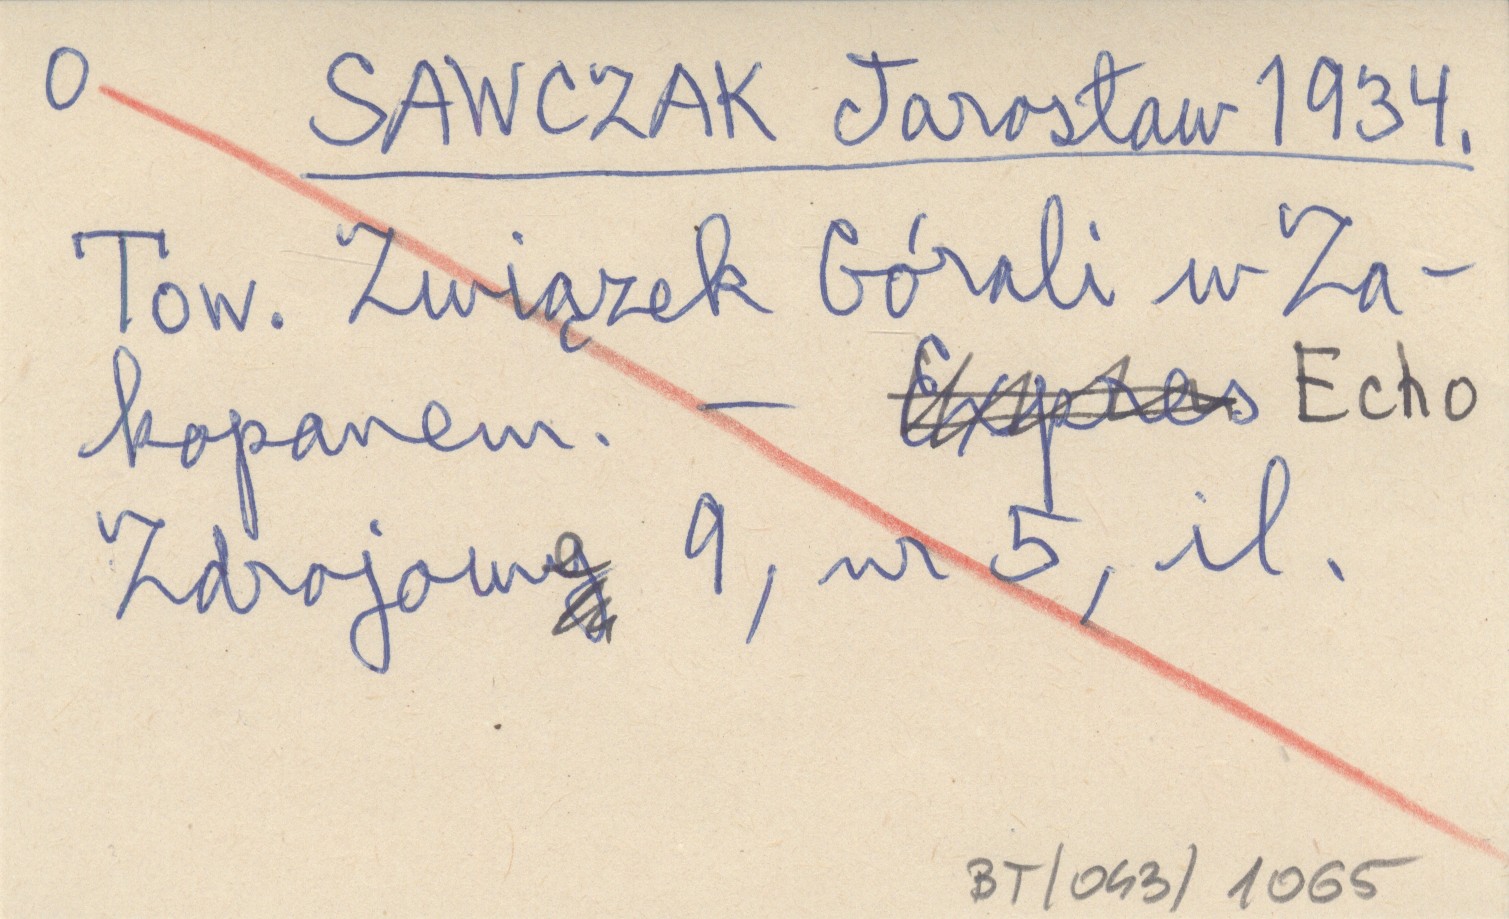 O SAWCZAK Jarosław 1934.
Tow. Związek Górali w Za-
kopanem. — Expres Echo
Zdrojowe 9, nr 5, il.
BT/043/1065